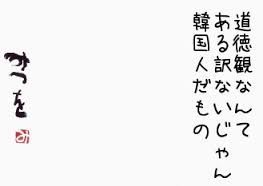 道徳観なんて
ある訳ないじゃん
韓国人だもの